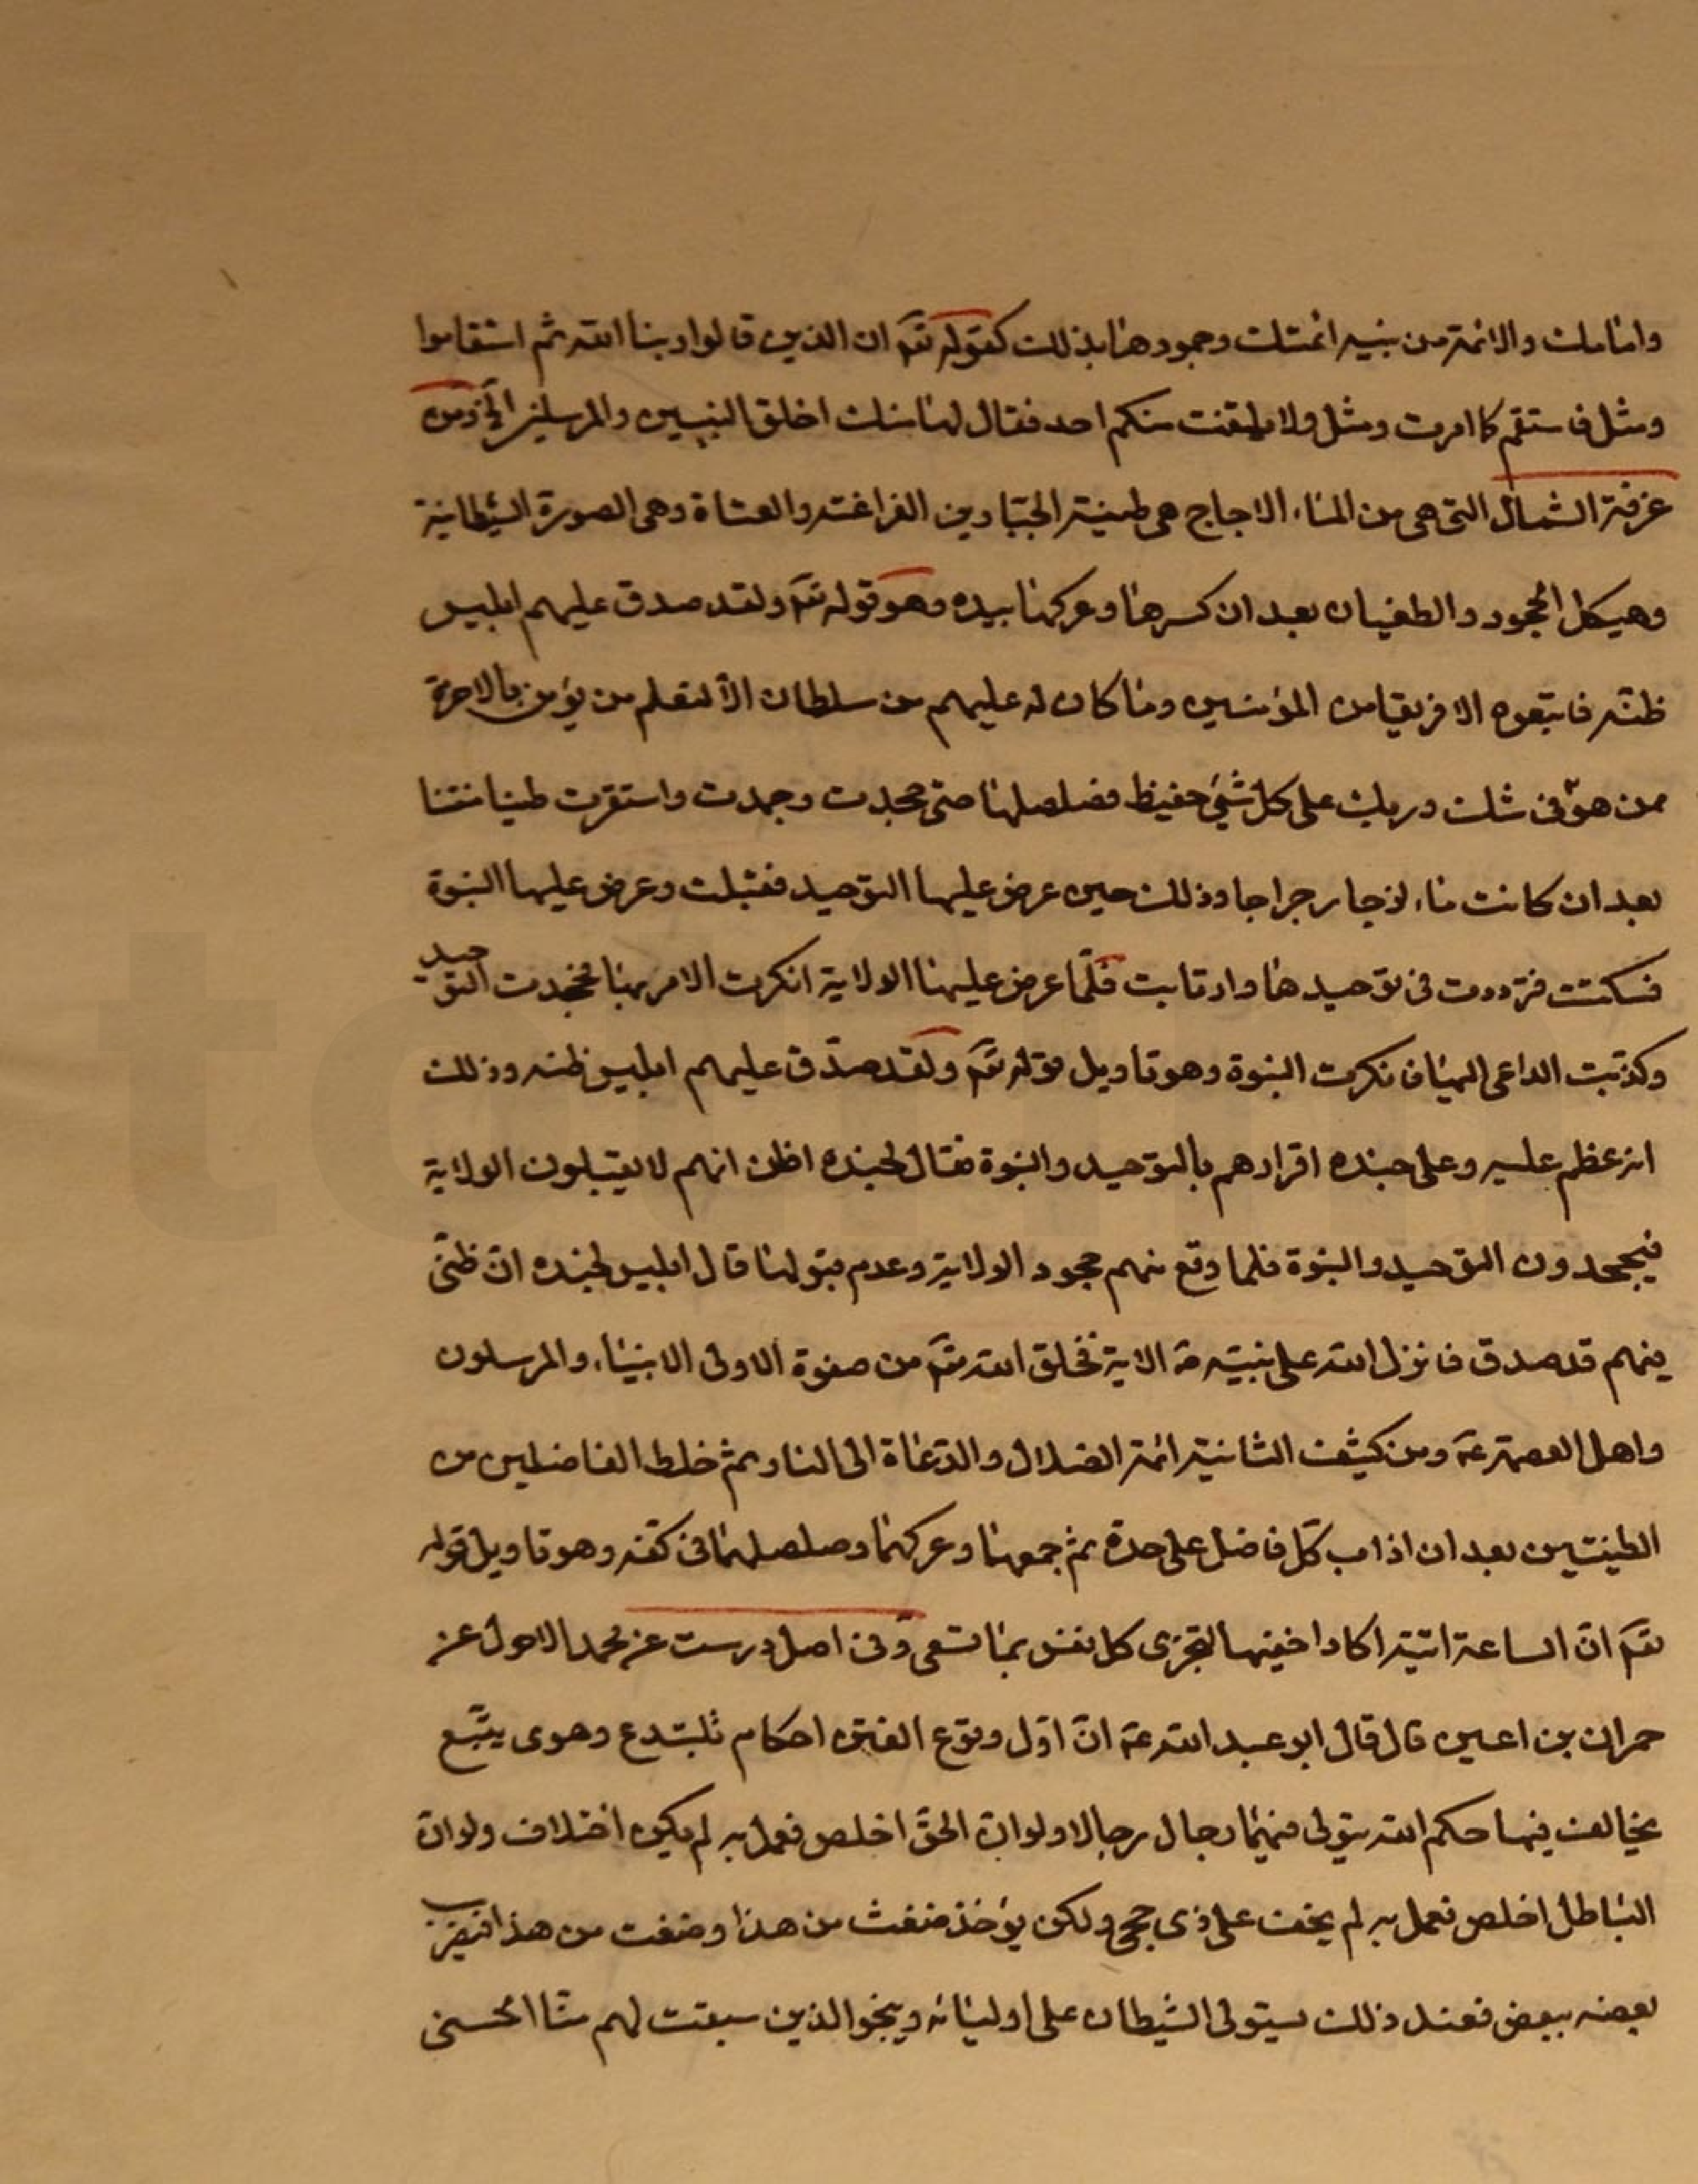 وانا ملت والائمة من بنيه ائمتك وجمودها بذلك كقوله تعم ان الذين قالوا ربنا الله ثم استقاموا
ومثل فاستقم كما امرت ومثل ولا يلتفت منكم احد فقال لها منك اخلق النبيين والمرسلين الخ ومن
غرفة الشمال التى هى من الماء الاجاج هى طينة الجبارين الفراغنه والعتاة وهى الصورة الشيطانية
وهيكل الجحود والطغيان بعد ان كسرها وعركها بيده وهو قوله تعم ولقد صدق عليهم ابليس
ظنه فاتبعوه الا فريقا من المؤمنين وما كان له عليهم من سلطان الا لنعلم من يؤمن بالاخرة
ممن هو فى شك وربك على كل شئ حفيظ فصلصلها حتى جمدت واستقرت طينا منتنا
بعد ان كانت ماء اجاجا وذلك حين عرض عليها التوحيد فقبلت وعرض عليها النبوة
فسكتت فترددت فى توحيدها وارتابت فلما عرض عليها الولاية انكرت الامر بها فجحدت التوحيد
وكذبت الداعى اليها فانكرت النبوة وهو تاويل قوله تعم ولقد صدق عليهم ابليس ظنه وذلك
انه عظم عليه وعلى جنده اقرارهم بالتوحيد والنبوة فقال لجنده اظن انهم لا يقبلون الولاية
فيجحدون التوحيد والنبوة فلما وقع منهم جحود الولاية وعدم قبولها قال ابليس لجنده ان ظنى
فيهم قد صدق فانزل الله على نبيه صه الاية فخلق الله تعم من صفوة الاولى الانبياء والمرسلون
واهل العصمة عه ومن كثيف الثانية ائمة الضلال والدعاة الى النار ثم خلط الفاضلين من
الطينتين بعد ان اذاب كل فاضل على حدة ثم جمعها وعركها وصلصلها فى كفه وهو تاويل قوله
تعم ان الساعة اتية اكاد اخفيها لتجزى كل نفس بما تسعى وفى اصل درست عن محمد الاحول عن
حمران بن اعين قال قال ابو عبد الله عه ان اول وقوع الفتن احكام تبتدع وهوى يتبع
يخالف فيها حكم الله يتولى فيها رجال رجالا ولو ان الحق اخلص فعمل به لم يكن اختلاف ولو ان
الباطل اخلص فعمل به لم يخف على ذى حجى ولكن يؤخذ ضغث من هذا وضغث من هذا فيضرب
بعضه ببعض فعند ذلك يستولى الشيطان على اوليائه وينجو الذين سبقت لهم منا الحسنى